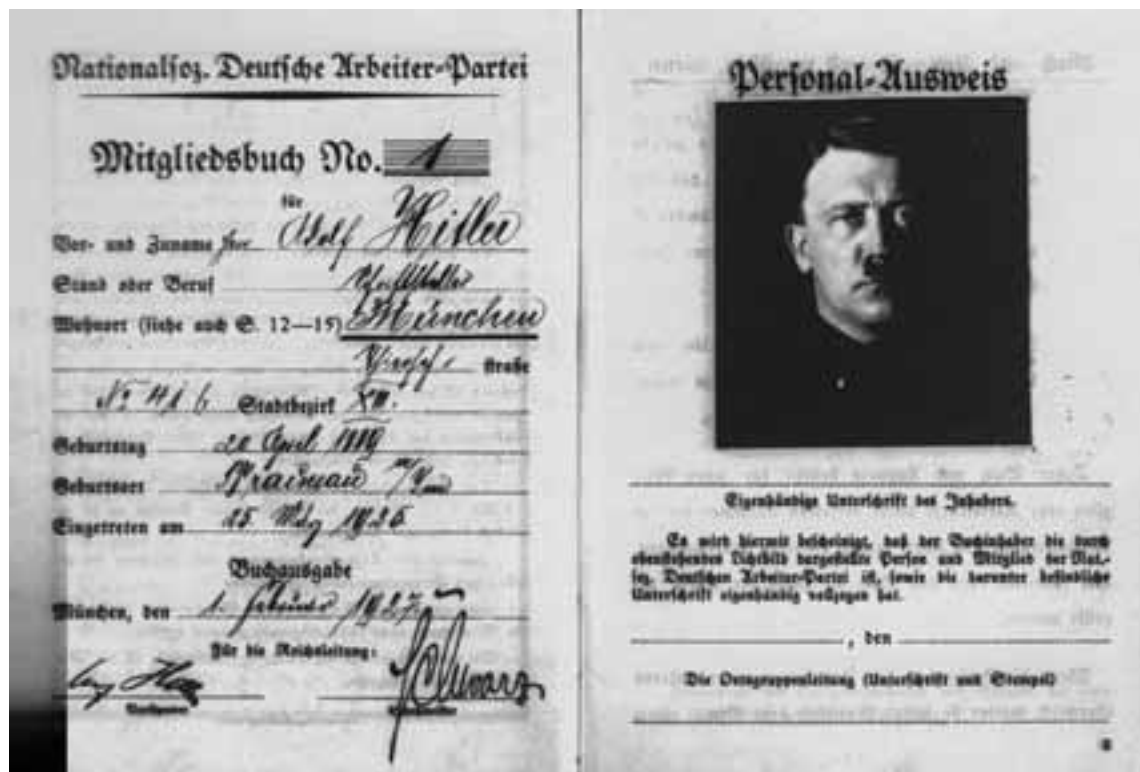 Nationalsoz. Deutsche Arbeiter-Partei
Mitgliedsbuch No. 1
für
Vor- und Zuname Adolf Hitler
Stand oder Beruf Schriftsteller
Wohnort (siehe auch S. 12—15) München
Thiersch- straße
No 41 Stadtbezirk XIII.
Geburtstag 20 April 1889
Geburtsort Braunau
Eingetreten am
Buchausgabe
München, den 1. Februar 1927.
Für die Reichsleitung:
Schwarz
Personal-Ausweis
Eigenhändige Unterschrift des Inhabers.
Es wird hiermit bescheinigt, daß der Buchinhaber die durch
obenstehendes Lichtbild dargestellte Person und Mitglied der Nat.-
soz. Deutschen Arbeiter-Partei ist, sowie die darunter befindliche
Unterschrift eigenhändig vollzogen hat.
, den
Die Ortsgruppenleitung (Unterschrift und Stempel)